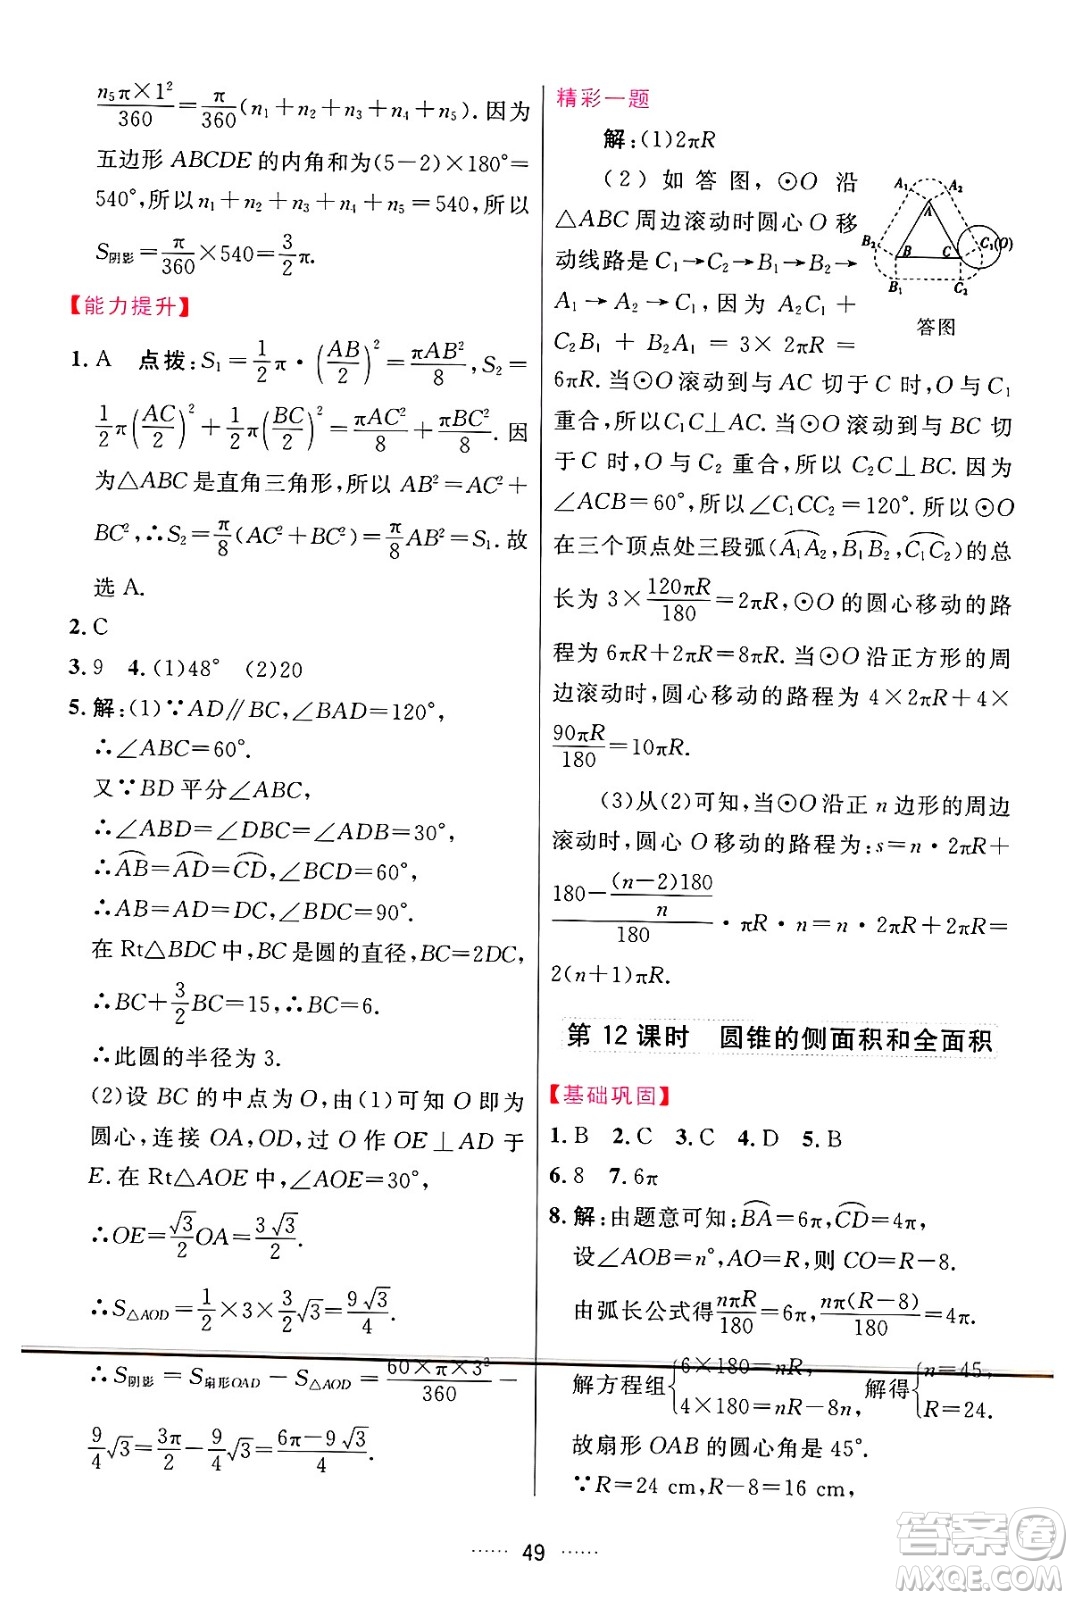 n₅π×1²/360=π/360(n₁+n₂+n₃+n₄+n₅).因为
五边形ABCDE的内角和为(5-2)×180°=
540°,所以n₁+n₂+n₃+n₄+n₅=540,所以
S阴影=π/360×540=3/2π.
【能力提升】
1.A 点拨:S₁=1/2π·(AB/2)²=πAB²/8,S₂=
1/2π(AC/2)²+1/2π(BC/2)²=πAC²/8+πBC²/8.因
为△ABC是直角三角形,所以AB²=AC²+
BC²,∴S₂=π/8(AC²+BC²)=π/8AB²=S₁.故
选A.
2.C
3.9 4.(1)48° (2)20
5.解:(1)∵AD∥BC,∠BAD=120°,
∴∠ABC=60°.
又∵BD平分∠ABC,
∴∠ABD=∠DBC=∠ADB=30°,
∴⌒AB=⌒AD=⌒CD,∠BCD=60°,
∴AB=AD=DC,∠BDC=90°.
在Rt△BDC中,BC是圆的直径,BC=2DC,
∴BC+3/2BC=15,∴BC=6.
∴此圆的半径为3.
(2)设BC的中点为O,由(1)可知O即为
圆心,连接OA,OD,过O作OE⊥AD于
E.在Rt△AOE中,∠AOE=30°,
∴OE=√3/2OA=3√3/2.
∴S△AOD=1/2×3×3/2√3=9√3/4.
∴S阴影=S扇形OAD-S△AOD=60×π×3²/360-
9/4√3=3π/2-9/4√3=6π-9√3/4.
精彩一题
解:(1)2πR
(2)如答图,⊙O沿
△ABC周边滚动时圆心O移
动线路是C₁→C₂→B₁→B₂→
A₁→A₂→C₁,因为A₂C₁+
C₂B₁+B₂A₁=3×2πR=
A₁ A₂
A
B₂ B C C₁(O)
B₁ C₂
答图
6πR.当⊙O滚动到与AC切于C时,O与C₁
重合,所以C₁C⊥AC.当⊙O滚动到与BC切
于C时,O与C₂重合,所以C₂C⊥BC.因为
∠ACB=60°,所以∠C₁CC₂=120°.所以⊙O
在三个顶点处三段弧(⌒A₁A₂,⌒B₁B₂,⌒C₁C₂)的总
长为3×120πR/180=2πR,⊙O的圆心移动的路
程为6πR+2πR=8πR.当⊙O沿正方形的周
边滚动时,圆心移动的路程为4×2πR+4×
90πR/180=10πR.
(3)从(2)可知,当⊙O沿正n边形的周边
滚动时,圆心O移动的路程为:s=n·2πR+
(180-(n-2)180/n)/180·πR·n=n·2πR+2πR=
2(n+1)πR.
第12课时 圆锥的侧面积和全面积
【基础巩固】
1.B 2.C 3.C 4.D 5.B
6.8 7.6π
8.解:由题意可知:⌒BA=6π,⌒CD=4π,
设∠AOB=n°,AO=R,则CO=R-8.
由弧长公式得nπR/180=6π,nπ(R-8)/180=4π.
解方程组{6×180=nR, 4×180=nR-8n, 解得{n=45, R=24.
故扇形OAB的圆心角是45°.
∵R=24 cm,R-8=16 cm,
······ 49 ······
答案卷
MXQE.COM